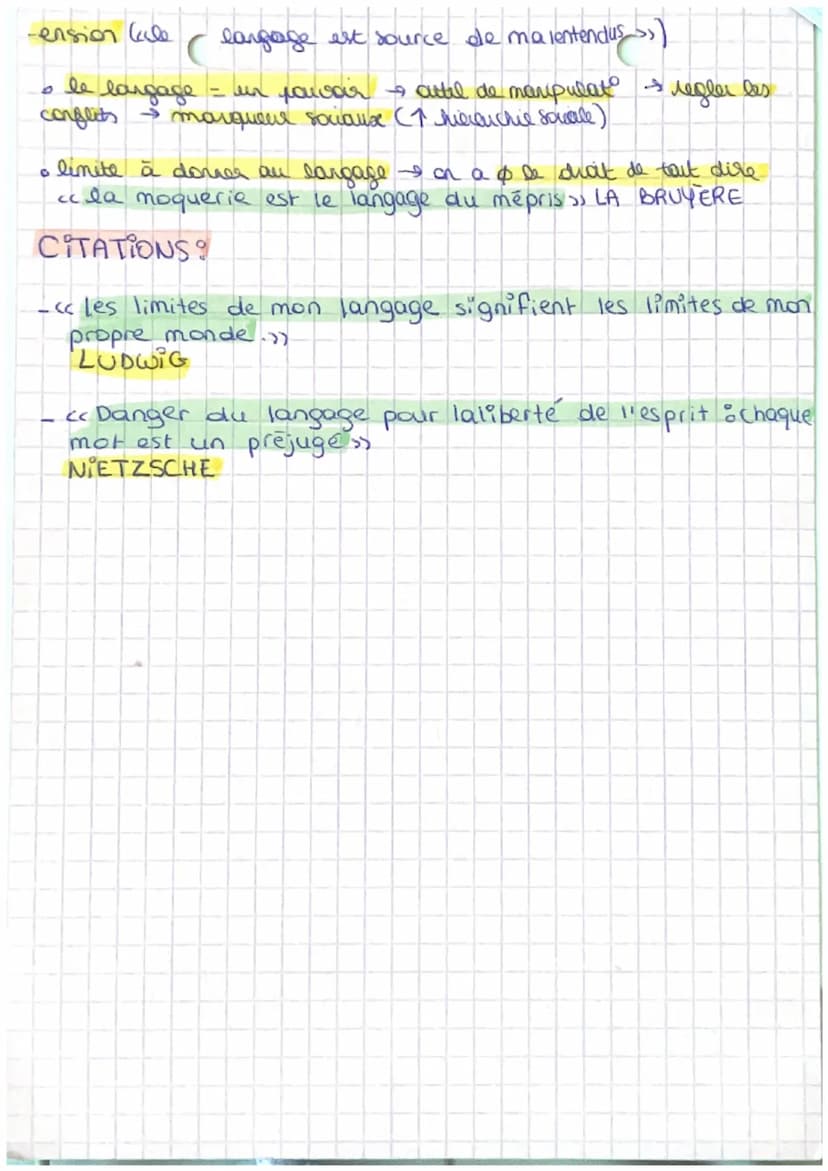 -ension («le langage est source de malentendus»)
• le langage = un pouvoir → outil de manipulat° → regler les
conflits → marqueurs sociaux (↑ hierarchie sociale)
• limite à donner au langage → on a φ le droit de tout dire
«la moquerie est le langage du mépris» LA BRUYÈRE
CITATIONS:
- «les limites de mon langage signifient les limites de mon
propre monde.»
LUDWIG
- «Danger du langage pour la liberté de l'esprit : chaque
mot est un préjugé»
NIETZSCHE